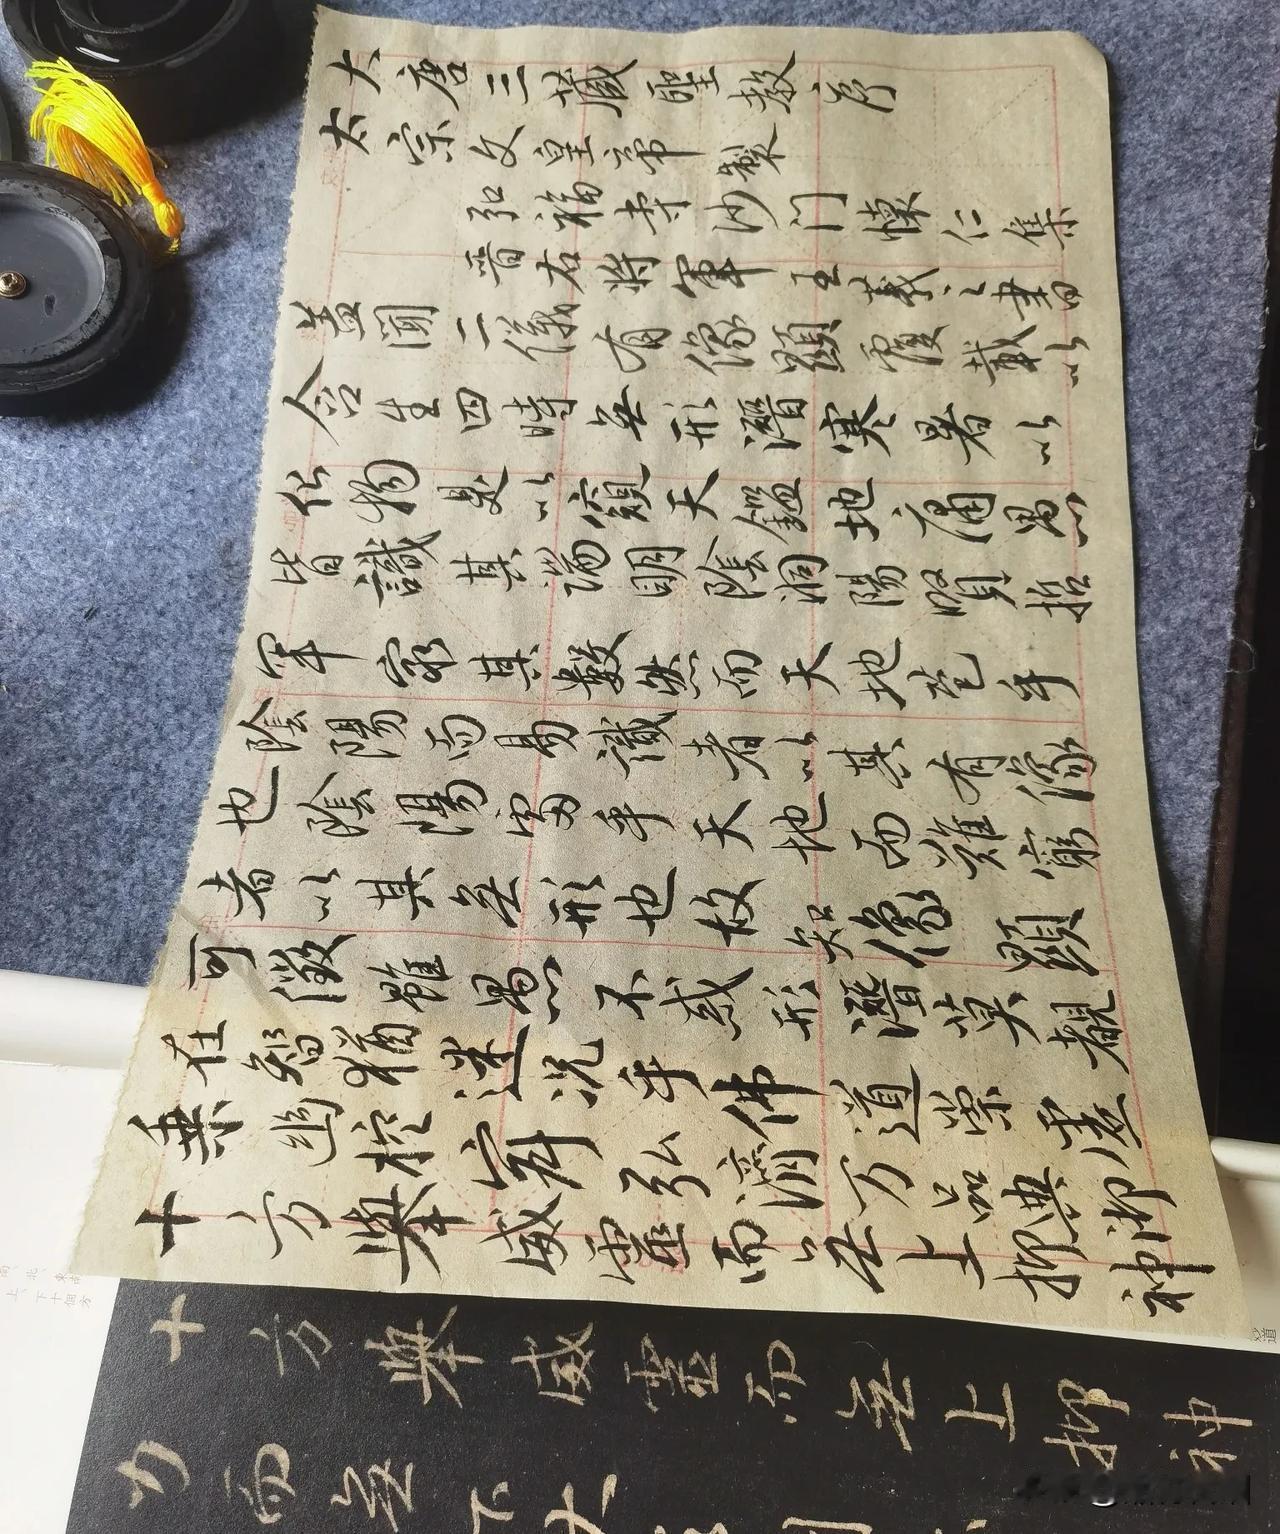 大唐三藏聖教序
太宗文皇帝製
弘福寺沙门懷仁集
晉右将軍王羲之書
盖聞二儀有像顯覆載以
含生四時無形潛寒暑以
化物是以窺天鑑地庸愚
皆識其端明陰洞陽賢哲
罕窮其數然而天地苞乎
陰陽而易識者以其有像
也陰陽處乎天地而難窮
者以其無形也故知像顯
可徵雖愚不惑形潛莫覩
在智猶迷况乎佛道崇虛
乘幽控寂弘濟万品典御
十方舉威靈而無上抑神
十方舉威靈而無上抑神
力而無下大